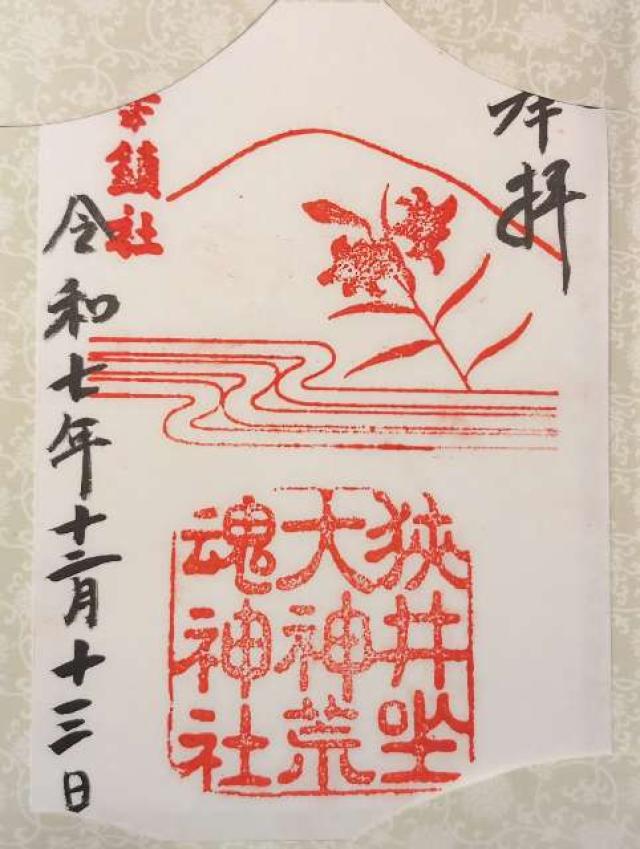 奉拝
狭井坐
大神荒
魂神社
華鎮社
令和七年十二月十三日